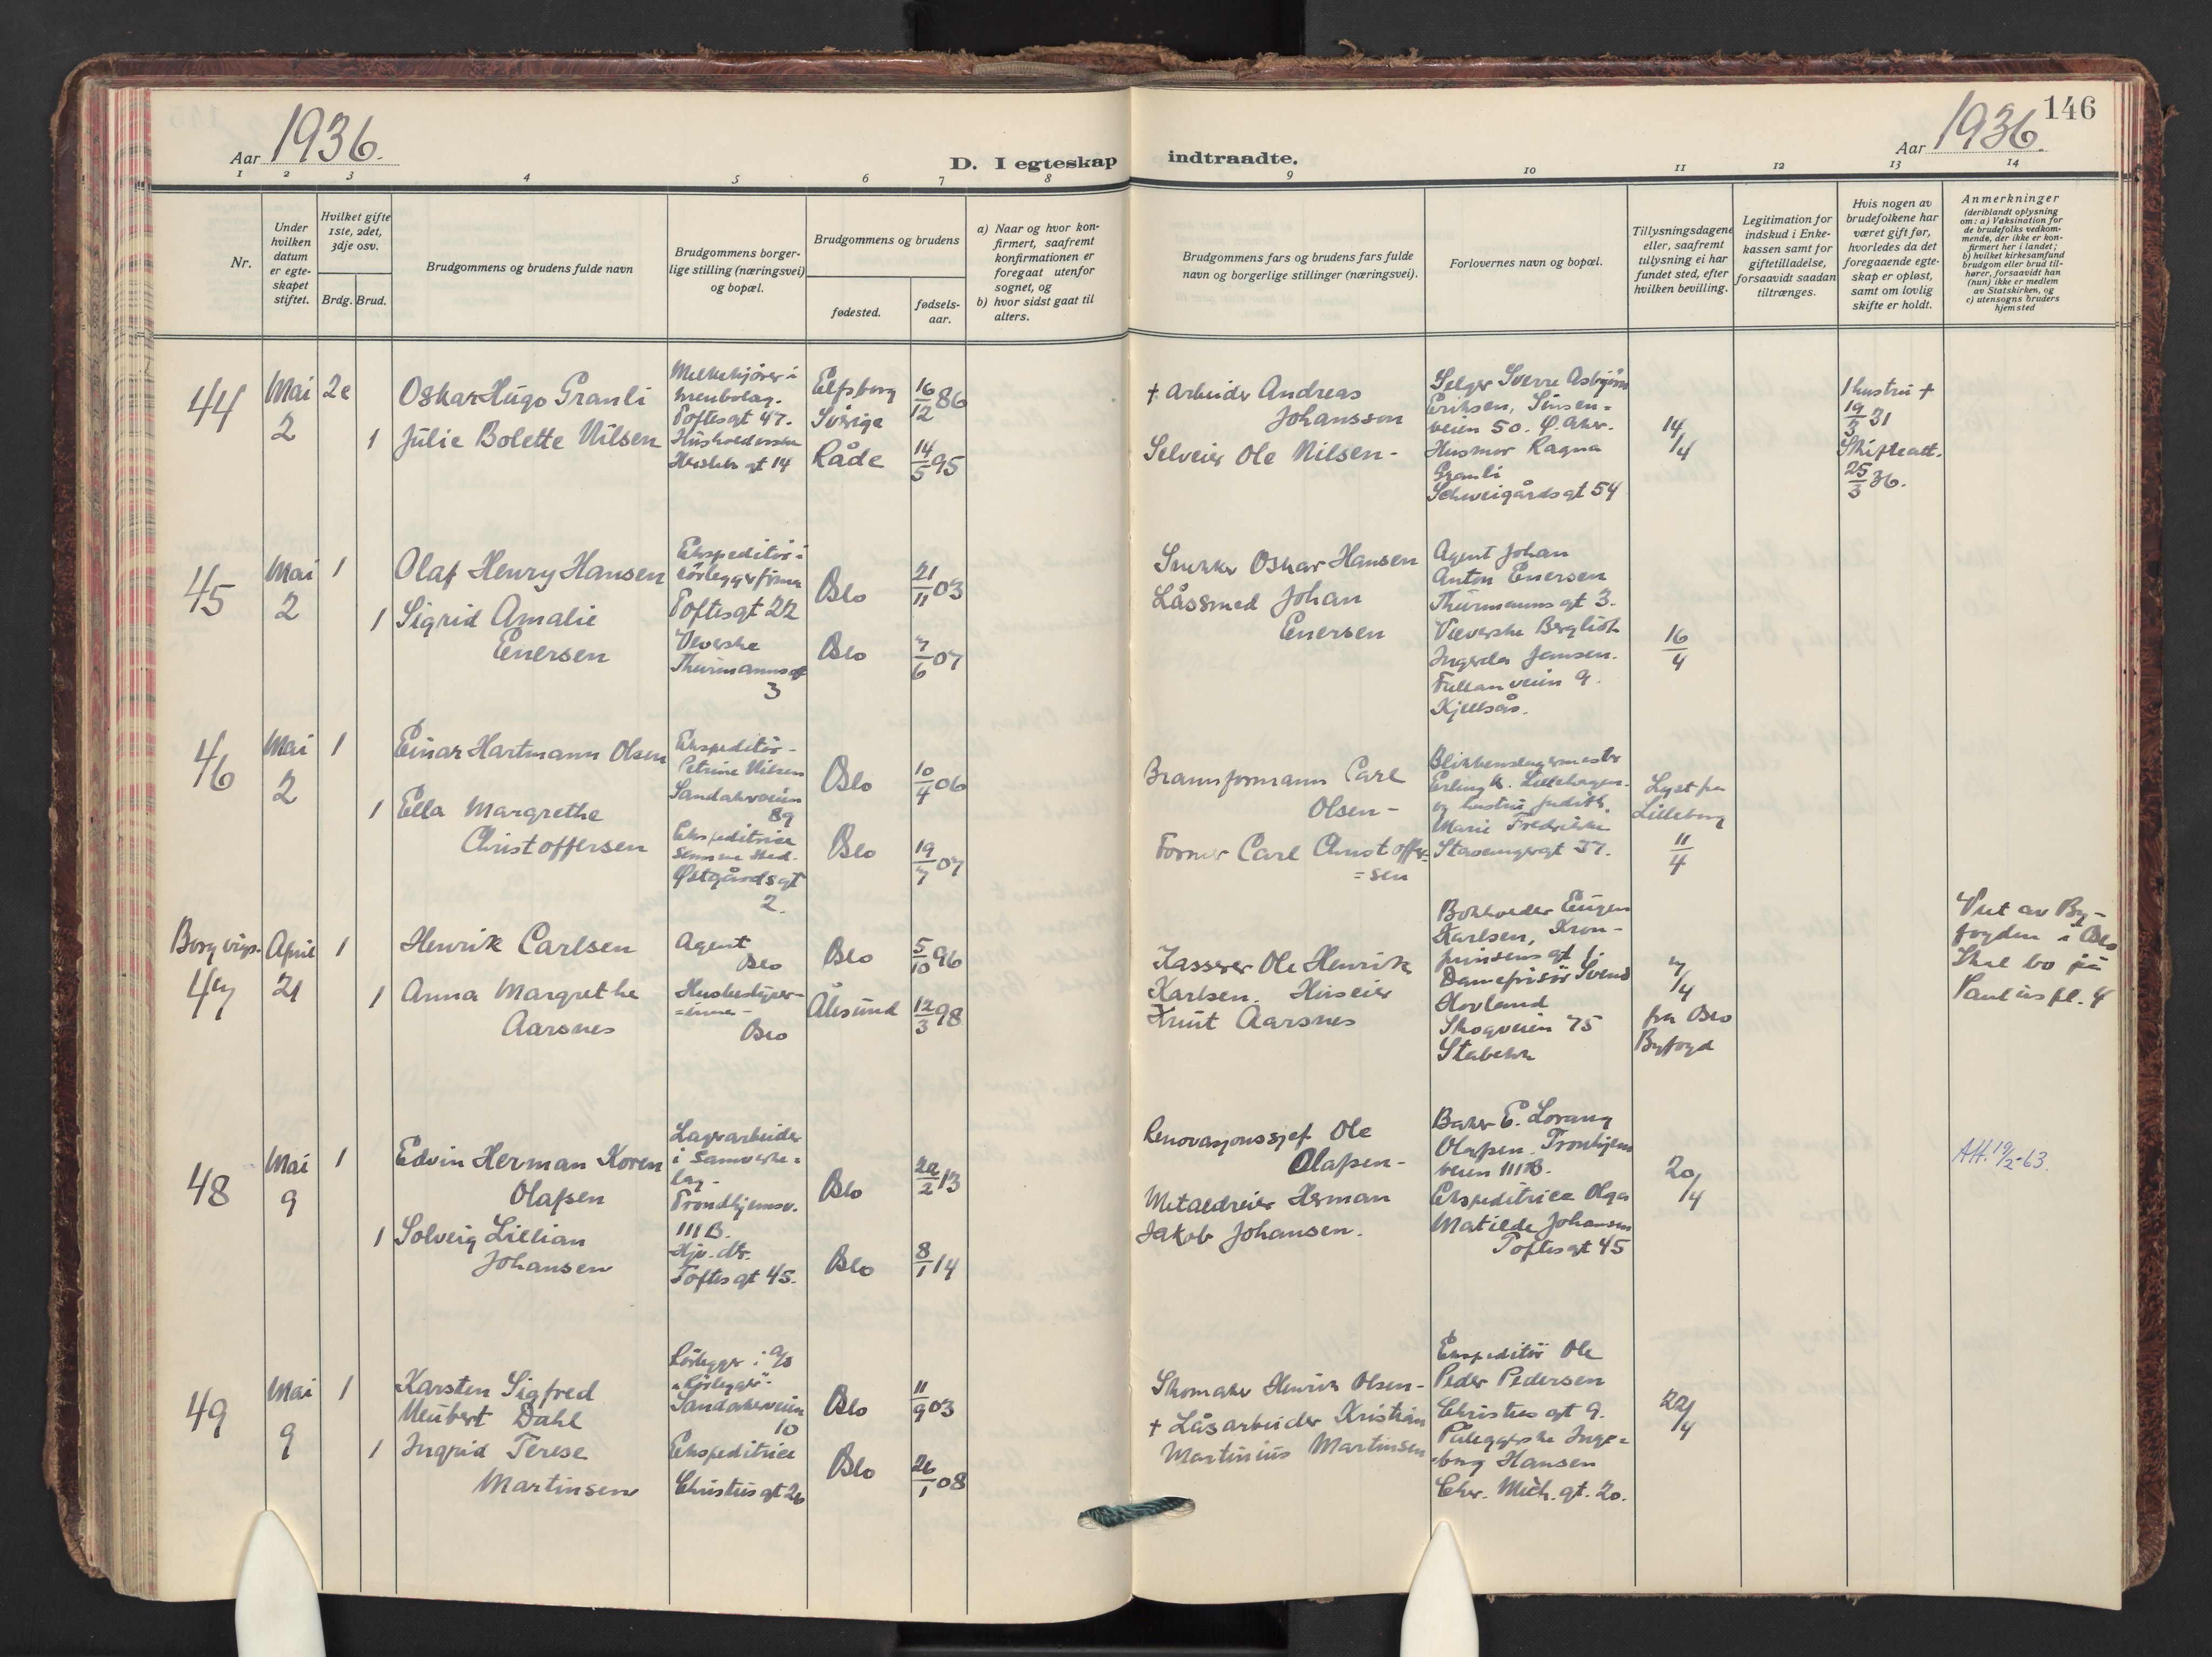 Aar 1936.
D. I egteskap indtraadte.
Aar 1936.
146
1 2 3 4 5 6 7 8 9 10 11 12 13 14
Nr.
Under hvilken datum er egteskapet stiftet.
Hvilket gifte 1ste, 2det, 3dje osv.
Brdg. Brud.
Brudgommens og brudens fulde navn
Brudgommens borgerlige stilling (næringsvei) og bopæl.
Brudgommens og brudens
fødested.
fødselsaar.
a) Naar og hvor konfirmert, saafremt konfirmationen er foregaat utenfor sognet, og
b) hvor sidst gaat til alters.
Brudgommens fars og brudens fars fulde navn og borgerlige stillinger (næringsvei).
Forlovernes navn og bopæl.
Tillysningsdagene eller, saafremt tillysning ei har fundet sted, efter hvilken bevilling.
Legitimation for indskud i Enkekassen samt for giftetilladelse, forsaavidt saadan tiltrænges.
Hvis nogen av brudefolkene har været gift før, hvorledes da det foregaaende egteskap er opløst, samt om lovlig skifte er holdt.
Anmerkninger (deriblandt oplysning om: a) Vaksination for de brudefolks vedkommende, der ikke er konfirmert her i landet; b) hvilket kirkesamfund brudgom eller brud tilhører, forsaavidt han (hun) ikke er medlem av Statskirken, og c) utensogns bruders hjemsted
44
Mai 2
2e
1
Oskar Hugo Granli
Julie Bolette Nilsen
Melkekjører i
Toftesgt 47.
gt 14
Elfsborg
Sverige
16/12 86
Råde
14/5 95
+ Arbeider Andreas
Johansson
Selveier Ole Nilsen -
Selger Sverre Asbjørn
Eriksen, Sinsen=
veien 50. Ø. Aker.
Husmor Ragna
Granli
Schweigårdsgt 54
14/4
1 hustru +
19/3 31
Skifteatt.
25/3 36.
45
Mai 2
1
1
Olaf Henry Hansen
Sigrid Amalie
Enersen
Ekspeditør i
rørleggerfirma
Toftesgt 22
Veverske
Thurmannsgt
3
Oslo
21/11 03
Oslo
7/6 07
Snekker Oskar Hansen
Låssmed Johan
Enersen
Agent Johan
Anton Enersen
Thurmannsgt 3.
Væverske Bergliot
Ingerda Jansen.
veien 9.
Kjelsås.
16/4
46
Mai 2
1
1
Einar Hartmann Olsen
Ella Margrethe
Christoffersen
Ekspeditør -
Petrine Nilsen
Sandakerveien
89
Ekspeditrice
samme sted.
Østgårdsgt
2.
Oslo
10/4 06
Oslo
19/7 07
Brannformann Carl
Olsen -
Former Carl Christoffer=
=sen
Blikkenslagermester
Erling K. Lillehagen.
og hustru Judith
Marie Fredrikke
Stavangergt 37.
Lyst fra
Lilleborg
11/4
Borg. vigs.
47
April 21
1
1
Henrik Carlsen
Anna Margrethe
Aarsnes
Agent
Oslo
Husbestyrer=
=inne -
Oslo
Oslo
5/10 96
Ålesund
12/3 98
Kasserer Ole Henrik
Karlsen. Huseier
Knut Aarsnes
Bokholder Eugen
Karlsen, Kron-
prinsens gt 1.
Damefrisør Svend
Hovland
Skogveien 75
Stabekk
7/4
fra Oslo
Byfogd
Viet av By-
fogden i Oslo
Skal bo på
Paulus pl. 4
48
Mai 9
1
1
Edvin Herman Koren
Olafsen
Solveig Lillian
Johansen
Lagerarbeider
i Samvirke=
lag -
Trondhjemsv.
111 B.
Hjv. dtr.
Toftes gt 45.
Oslo
22/2 13
Oslo
8/1 14
Renovasjonssjef Ole
Olafsen -
Metaldreier Herman
Jakob Johansen.
Baker E. Lorang
Olafsen. Tronhjems
veien 111 B.
Ekspeditrice Olga
Matilde Johansen
Toftesgt 45
20/4
Att. 19/2-63.
49
Mai 9
1
1
Karsten Sigfred
Neubert Dahl
Ingrid Terese
Martinsen
Rørlegger i A/S
„Rørlegger"
Sandakerveien
10
Ekspeditrice
Christies gt 26
Oslo
11/9 03
Oslo
26/1 08
Skomaker Henrik Olsen -
+ Låsarbeider Kristian
Martinius Martinsen
Ekspeditør Ole
Peder Pedersen
Christies gt 9.
Påleggerske Inge=
borg Hansen
Chr. Mich. gt. 20.
22/4